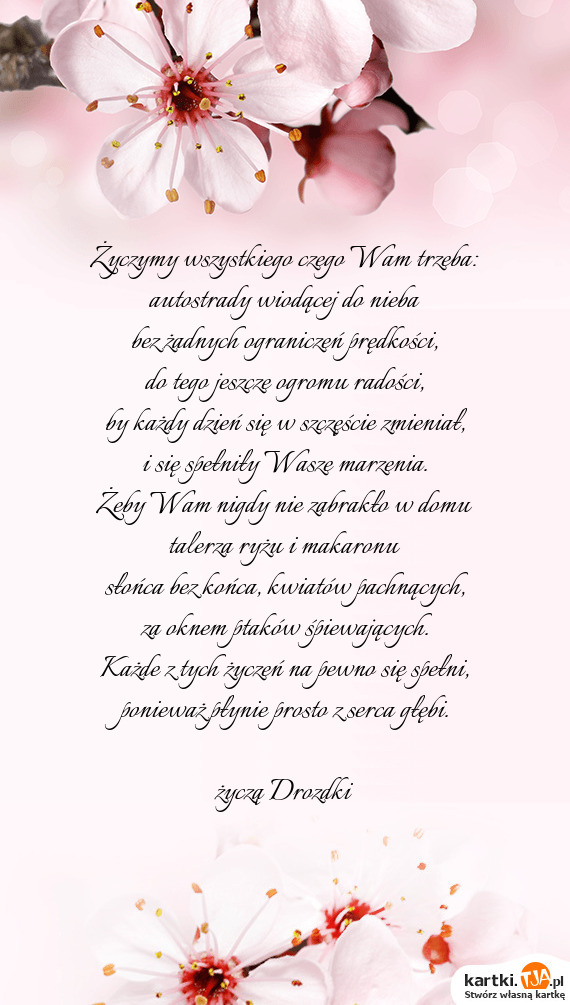 Życzymy wszystkiego czego Wam trzeba:
autostrady wiodącej do nieba
bez żadnych ograniczeń prędkości,
do tego jeszcze ogromu radości,
by każdy dzień się w szczęście zmieniał,
i się spełniły Wasze marzenia.
Żeby Wam nigdy nie zabrakło w domu
talerza ryżu i makaronu
słońca bez końca, kwiatów pachnących,
za oknem ptaków śpiewających.
Każde z tych życzeń na pewno się spełni,
ponieważ płynie prosto z serca głębi.
życzą Drozdki
kartki.TJA.pl
Stwórz własną kartkę